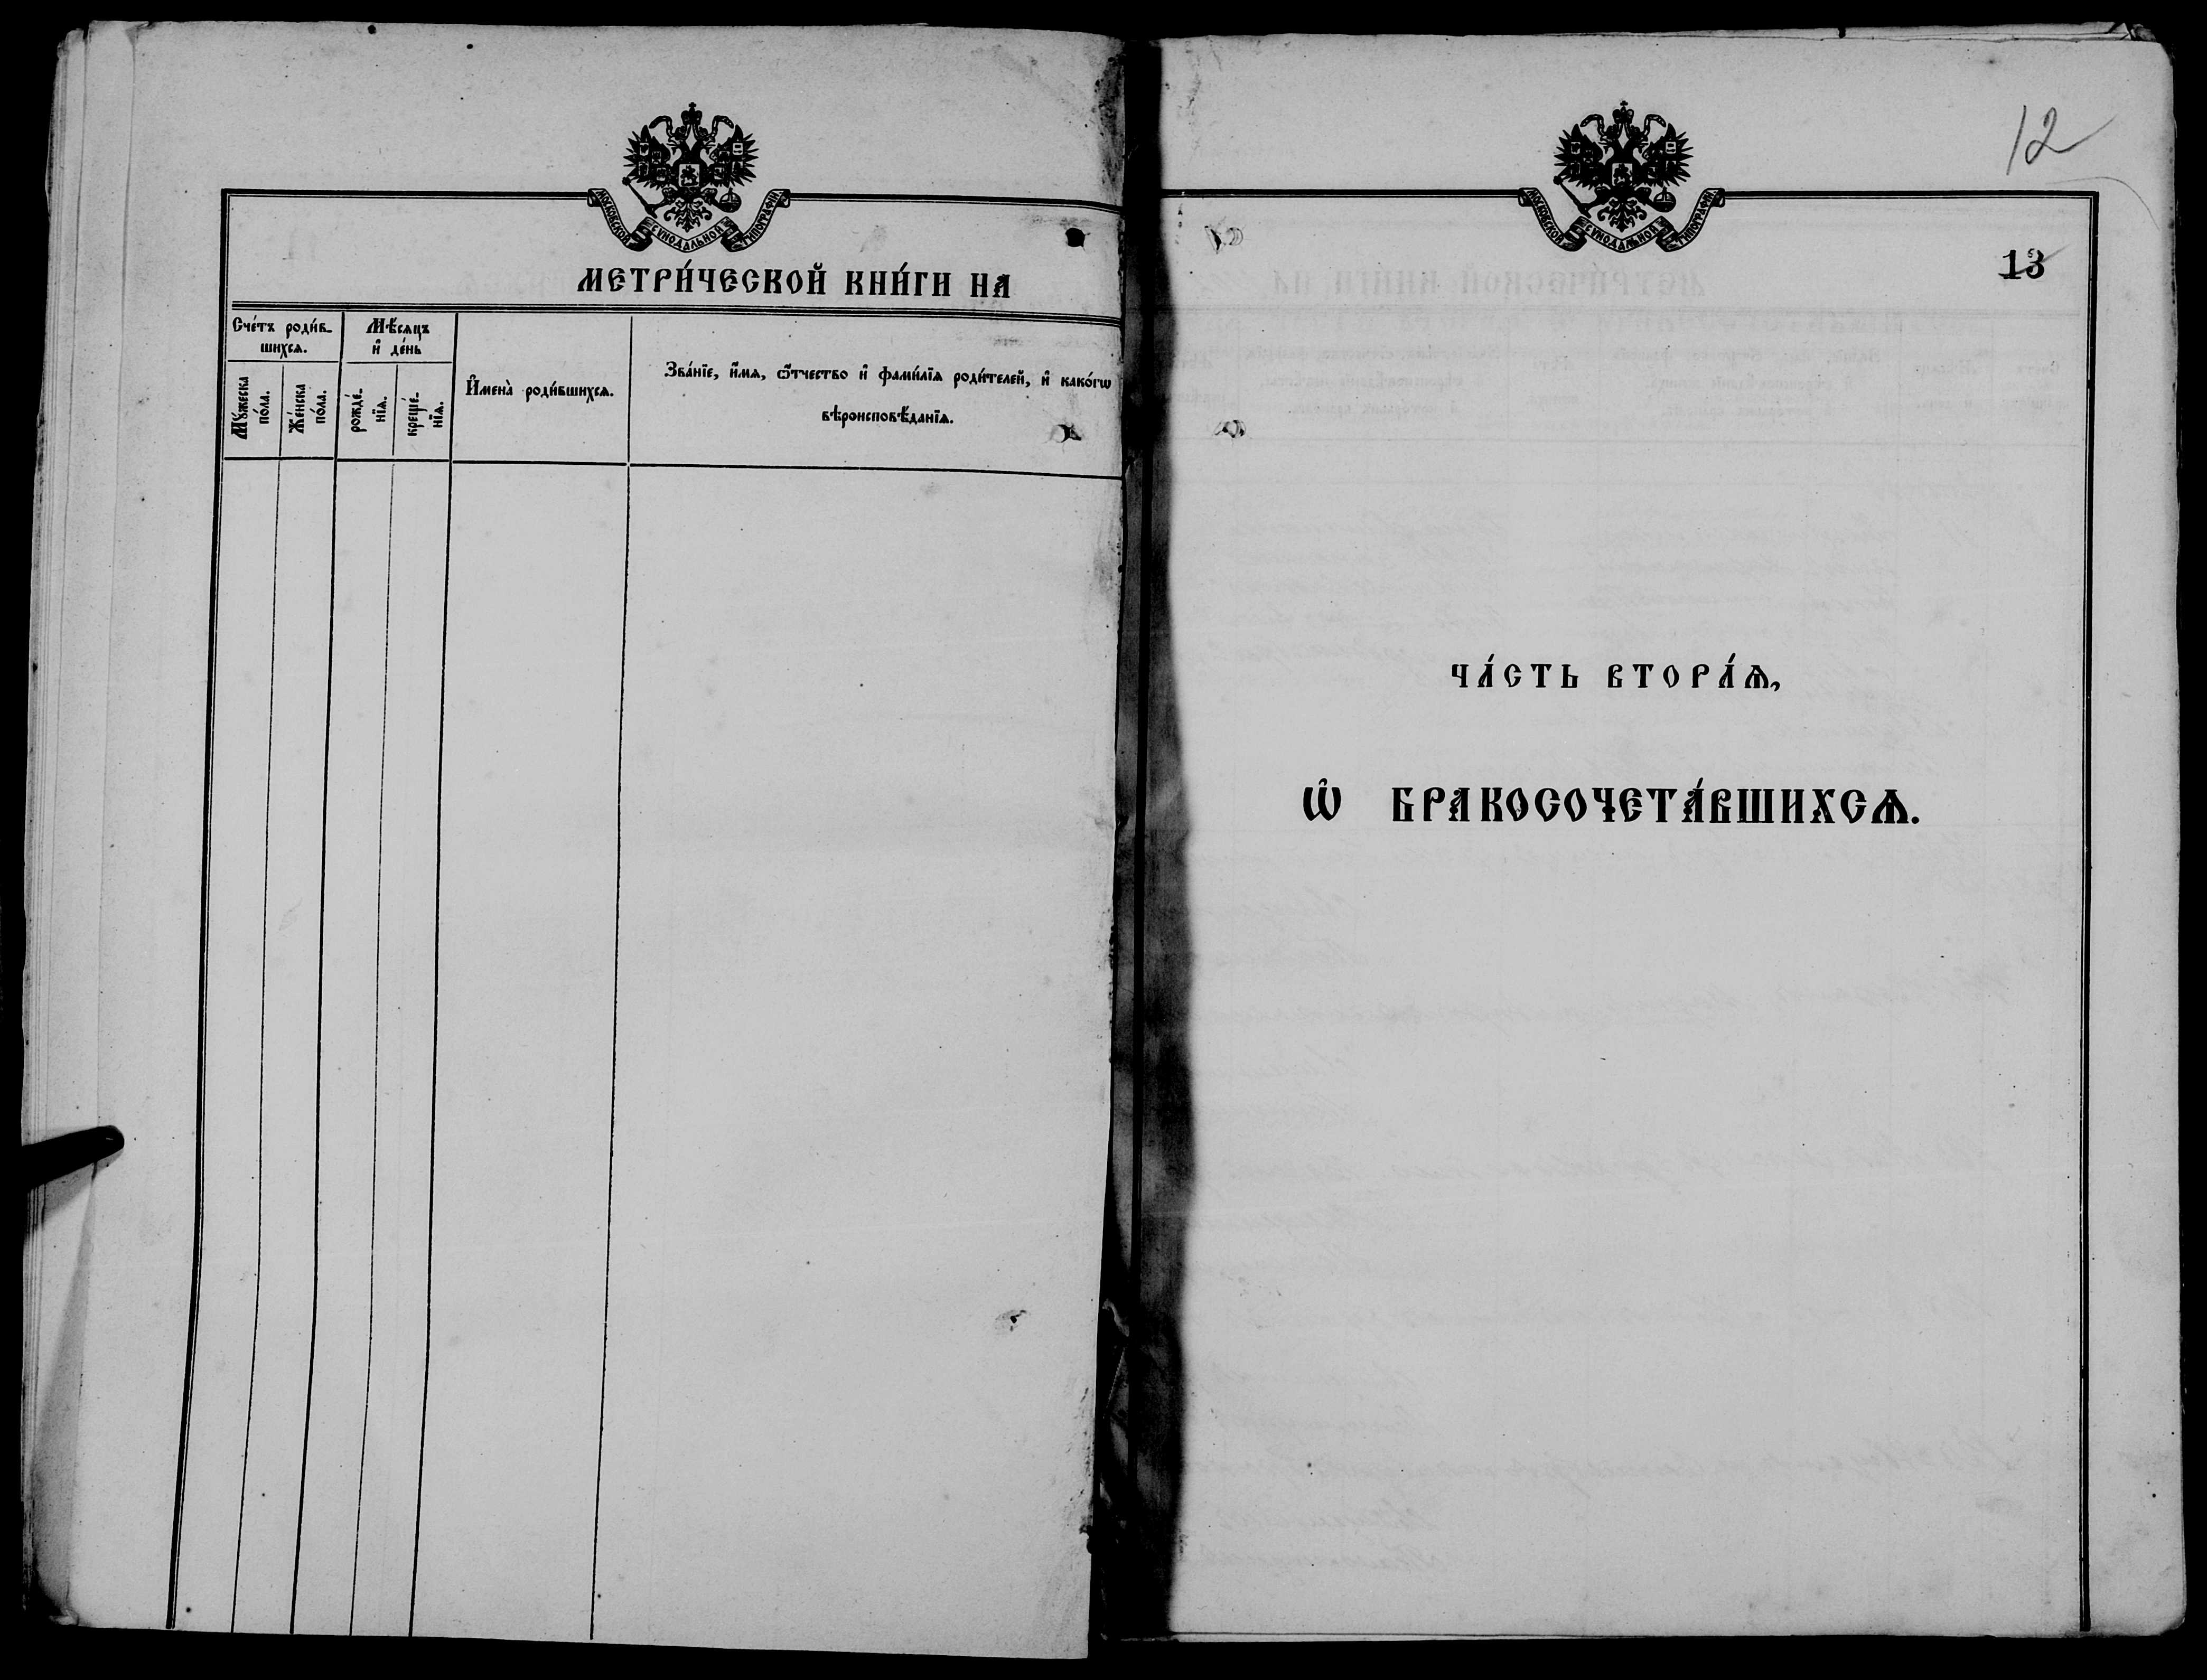 МОСКОВСКОЙ СѴНОДАЛЬНОЙ ТИПОГРАФІИ
МЕТРИ́ЧЕСКОЙ КНИ́ГИ НА
Сче́тъ роди́в-
шихсѧ.
Мѣ́сѧцъ
и҆ де́нь
И҆мена̀ роди́вшихсѧ.
Зва́нїе, и҆́мѧ, ѻ҆́тчество и҆ фами́лїѧ роди́телей, и҆ како́гѡ
вѣроисповѣ́данїѧ.
Мꙋ́жеска
по́ла.
Же́нска
по́ла.
рожде́-
нїѧ.
креще́-
нїѧ.
12
МОСКОВСКОЙ СѴНОДАЛЬНОЙ ТИПОГРАФІИ
13
ЧА́СТЬ ВТОРА́Ѧ,
Ѡ҆ БРАКОСОЧЕТА́ВШИХСѦ.